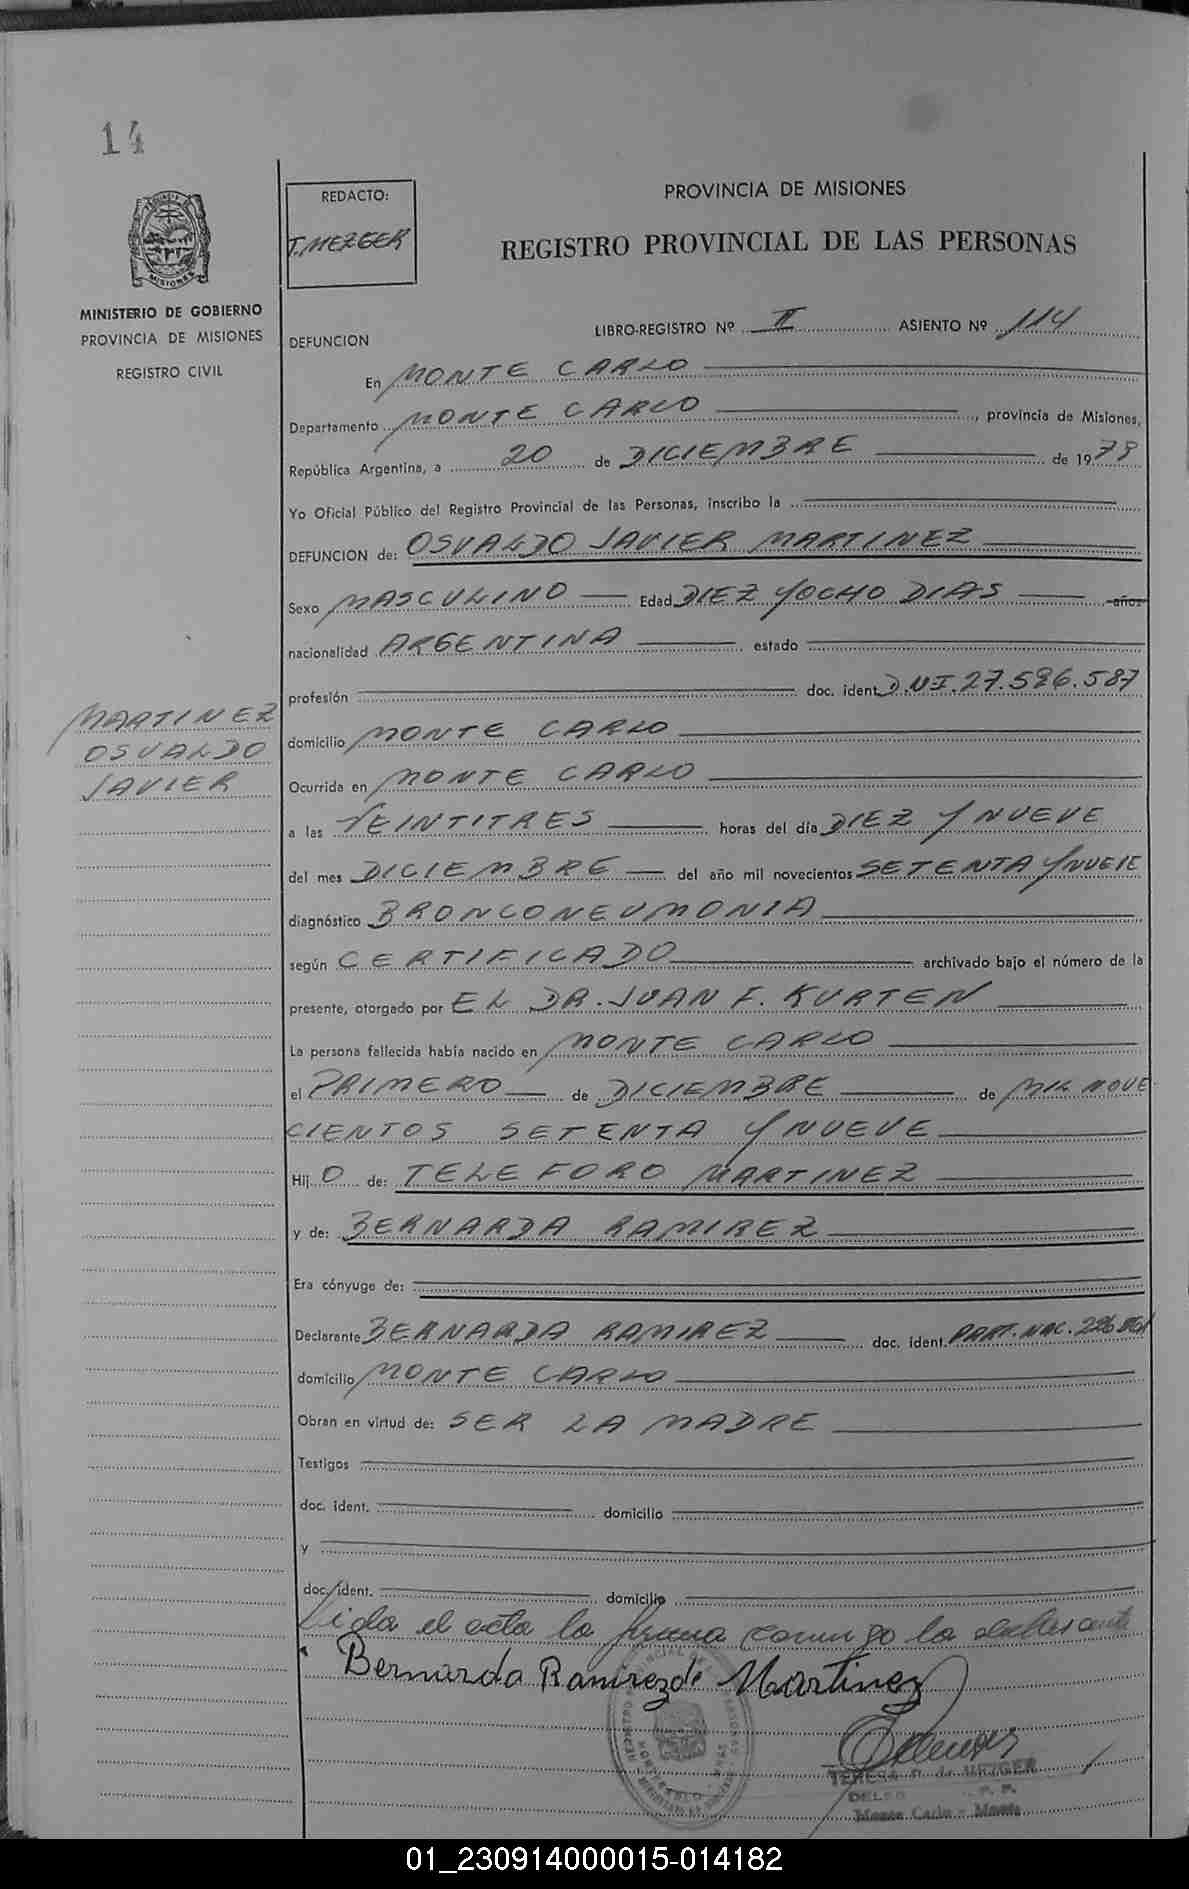 14
REDACTO:
T. MEZGER
PROVINCIA DE MISIONES
REGISTRO PROVINCIAL DE LAS PERSONAS
MISIONES
MINISTERIO DE GOBIERNO
PROVINCIA DE MISIONES
REGISTRO CIVIL
DEFUNCION
LIBRO-REGISTRO Nº II ASIENTO Nº 114
En MONTE CARLO
Departamento MONTE CARLO, provincia de Misiones,
República Argentina, a 20 de DICIEMBRE de 1979
Yo Oficial Público del Registro Provincial de las Personas, inscribo la
DEFUNCION de: OSVALDO JAVIER MARTINEZ
Sexo MASCULINO Edad DIEZ YOCHO DIAS años
nacionalidad ARGENTINA estado
profesión doc. ident. D.N.I. 27.596.587
MARTINEZ
OSVALDO
JAVIER
domicilio MONTE CARLO
Ocurrida en MONTE CARLO
a las VEINTITRES horas del día DIEZ Y NUEVE
del mes DICIEMBRE del año mil novecientos SETENTA Y NUEVE
diagnóstico BRONCONEUMONIA
según CERTIFICADO archivado bajo el número de la
presente, otorgado por EL DR. JUAN F. KURTEN
La persona fallecida había nacido en MONTE CARLO
el PRIMERO de DICIEMBRE de MIL NOVE
CIENTOS SETENTA Y NUEVE
Hij O de: TELEFORO MARTINEZ
y de: BERNARDA RAMIREZ
Era cónyuge de:
Declarante BERNARDA RAMIREZ doc. ident. PART. NAC.
domicilio MONTE CARLO
Obran en virtud de: SER LA MADRE
Testigos
doc. ident. domicilio
y
doc. ident. domicilio
Lida el acta la firma conmigo la declarante
Bernarda Ramirez de Martinez
TERESA P. de MEZGER
Monte Carlo - Mnes
01_230914000015-014182